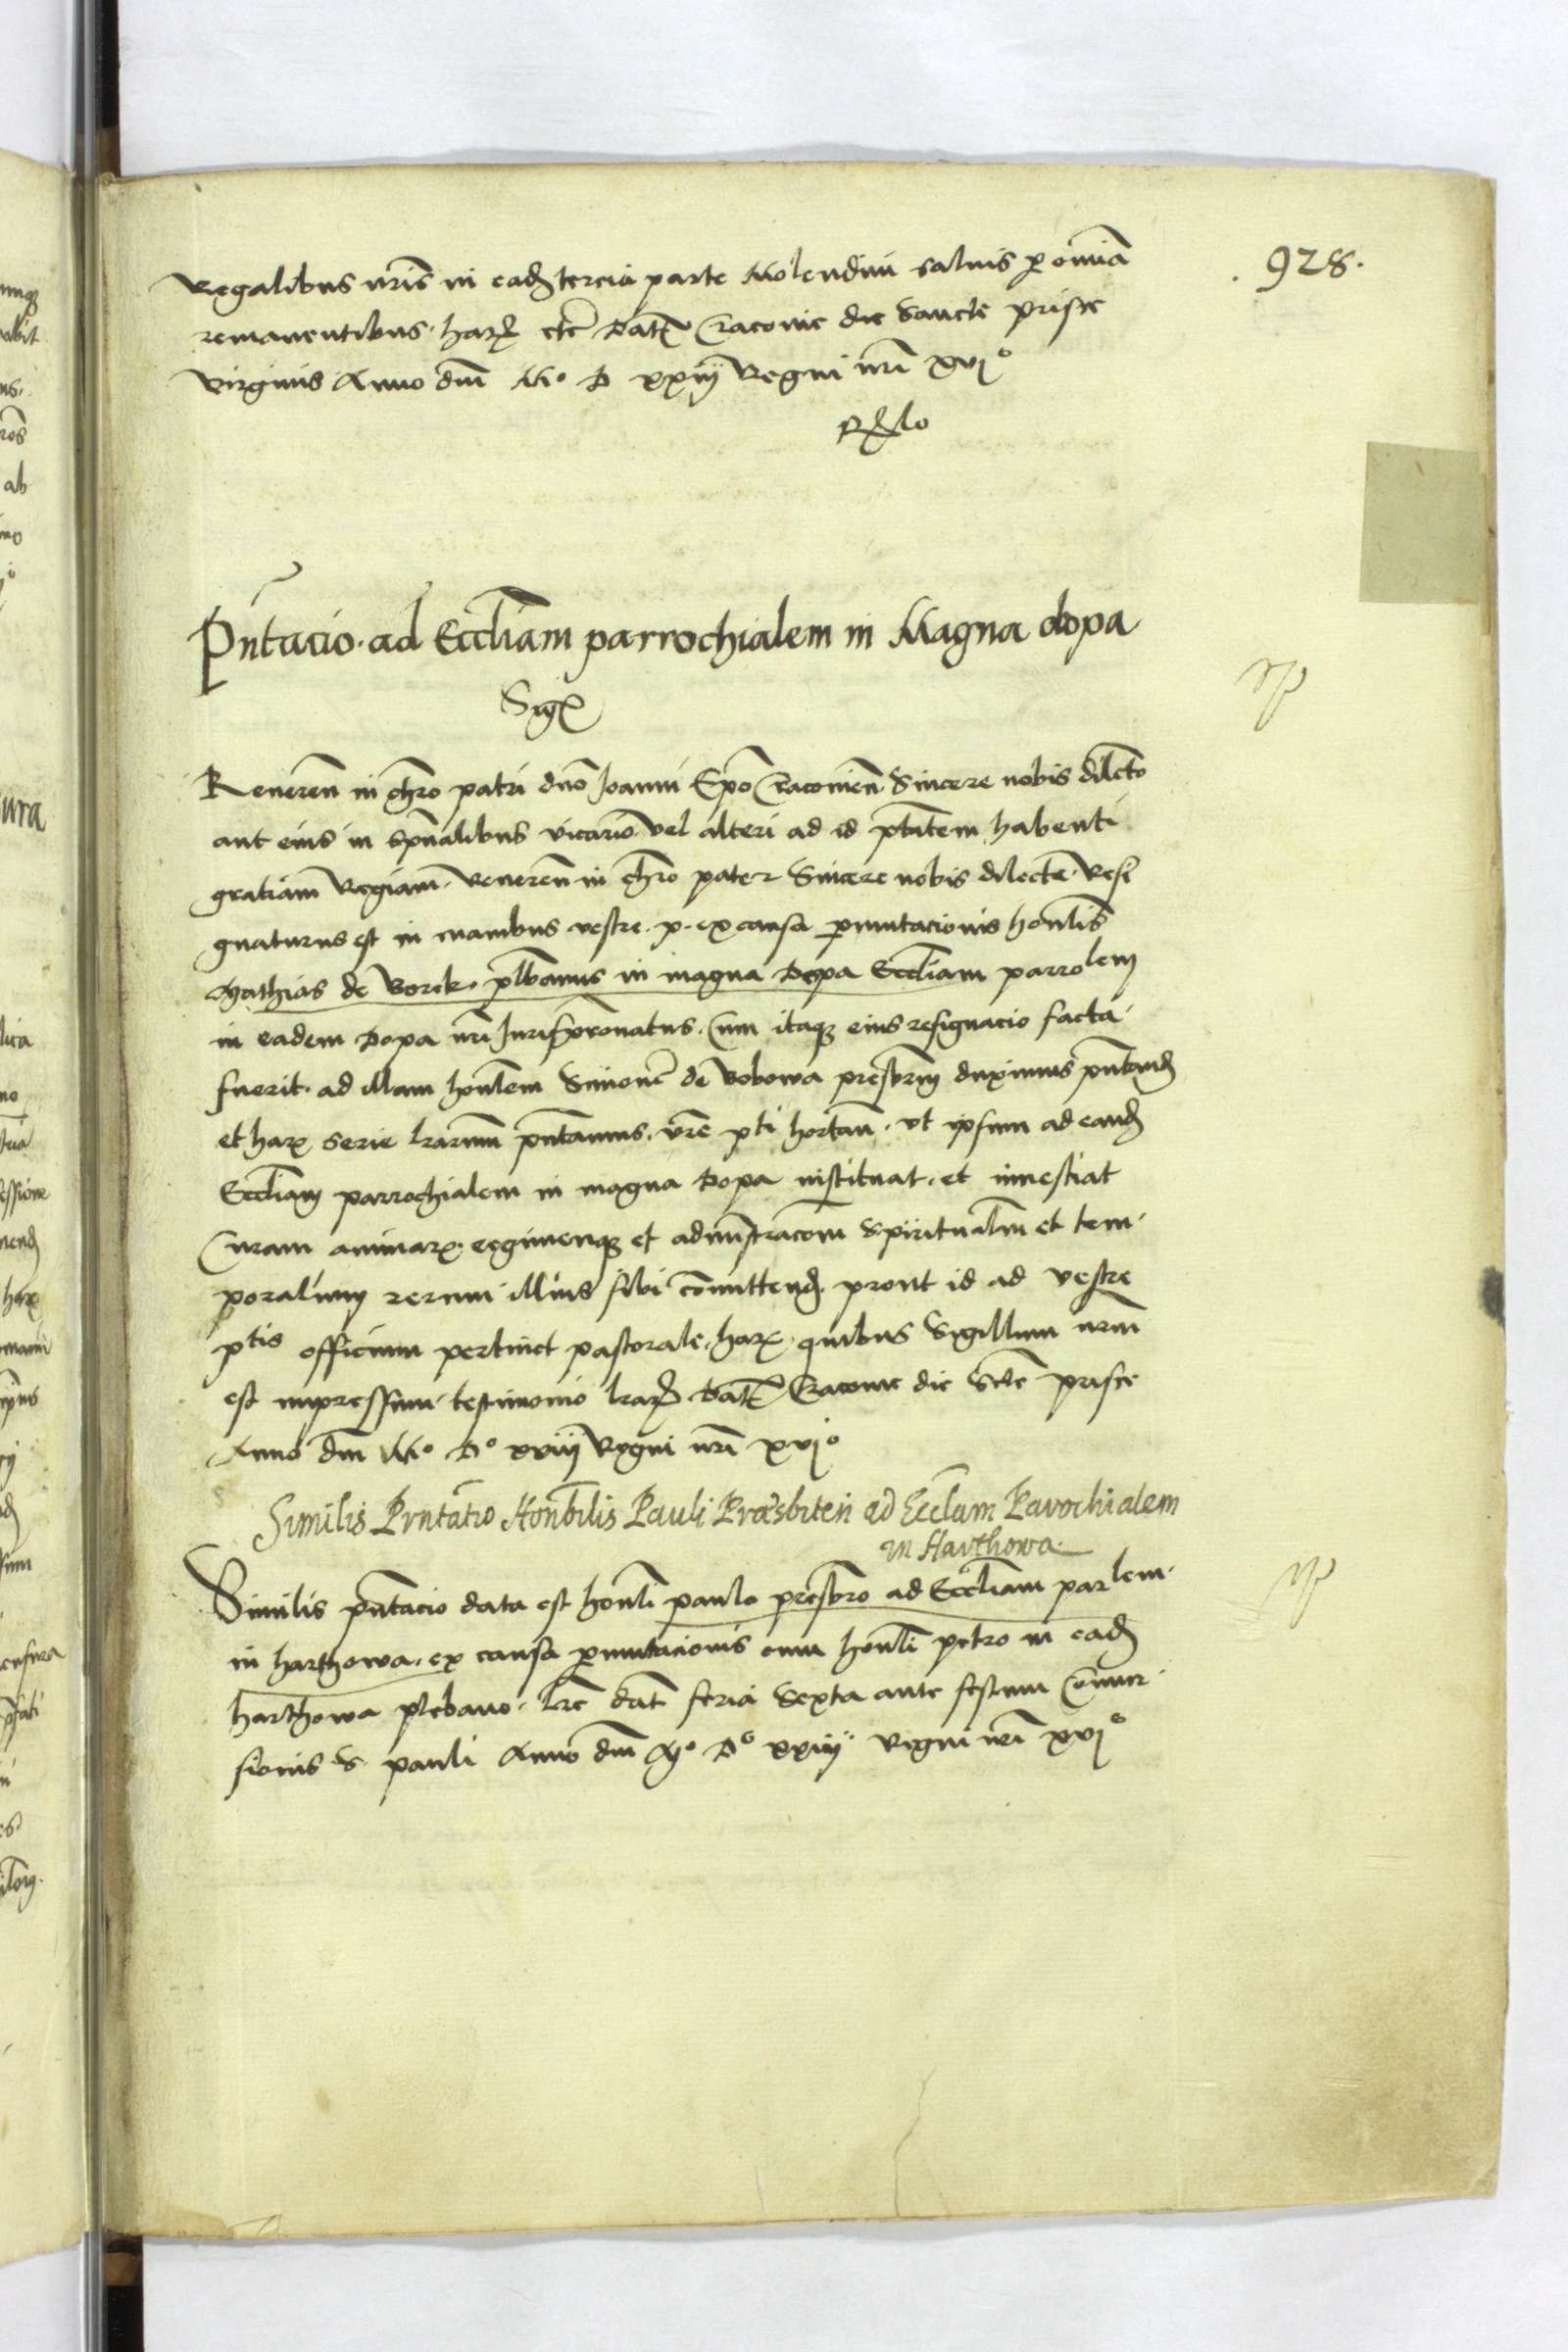 928.
Regalibus nris in ead tercia parte Molendini salvis p omnia
remanentibus. harz etc Dat Cracovie die Sancte prisce
virginis Anno dni Mo D xxiij Regni nri xvjo
Pntacio ad Eccliam parrochialem in Magna dopa
Sigz
Reveren in chro patri dno Joanni Epo Cracovien Sincere nobis dilecto
aut eius in spualibus vicario vel alteri ad id ptatem habenti
gratiam Regiam. Veneren in chro pater Sincere nobis dilecte. Resi
gnaturus est in manibus vestre. p. ex causa pmutacionis honlis
Mathias de Borek. plbanus in magna Dopa Eccliam parrolem
in eadem Dopa nri Jurispronatus. Cum itaq eius resignacio facta
fuerit. ad illam honlem Simone de Bobowa presbrm duximus pntand
et harz serie lrarum pntamus. vre pti hortan. vt ipsum ad eand
Eccliam parrochialem in magna Dopa instituat. et investiat
Curam animarz. regimenq et adminstracom spiritualm et tem
poralium rerum illius sibi comittend. prout id ad vestre
ptis officium pertinet pastorale. harz. quibus Sigillum nrm
est impressum testimonio lrarz. Dat Cracovie die Scte prisce
Anno dni Mo Do xxiij Regni nri xvjo
Similis Prntatio Honbilis Pauli Præsbiteri ad Ecclam Parochialem
in Harthowa
Similis pntacio data est honli paulo presbro ad Eccliam parlem
in harthowa. ex causa pmutacionis cum honli petro in ead
harthowa plebano. lre dat feria Sexta ante festum Conver
sionis S. pauli Anno dni Mo Do xxiij Regni nri xvjo